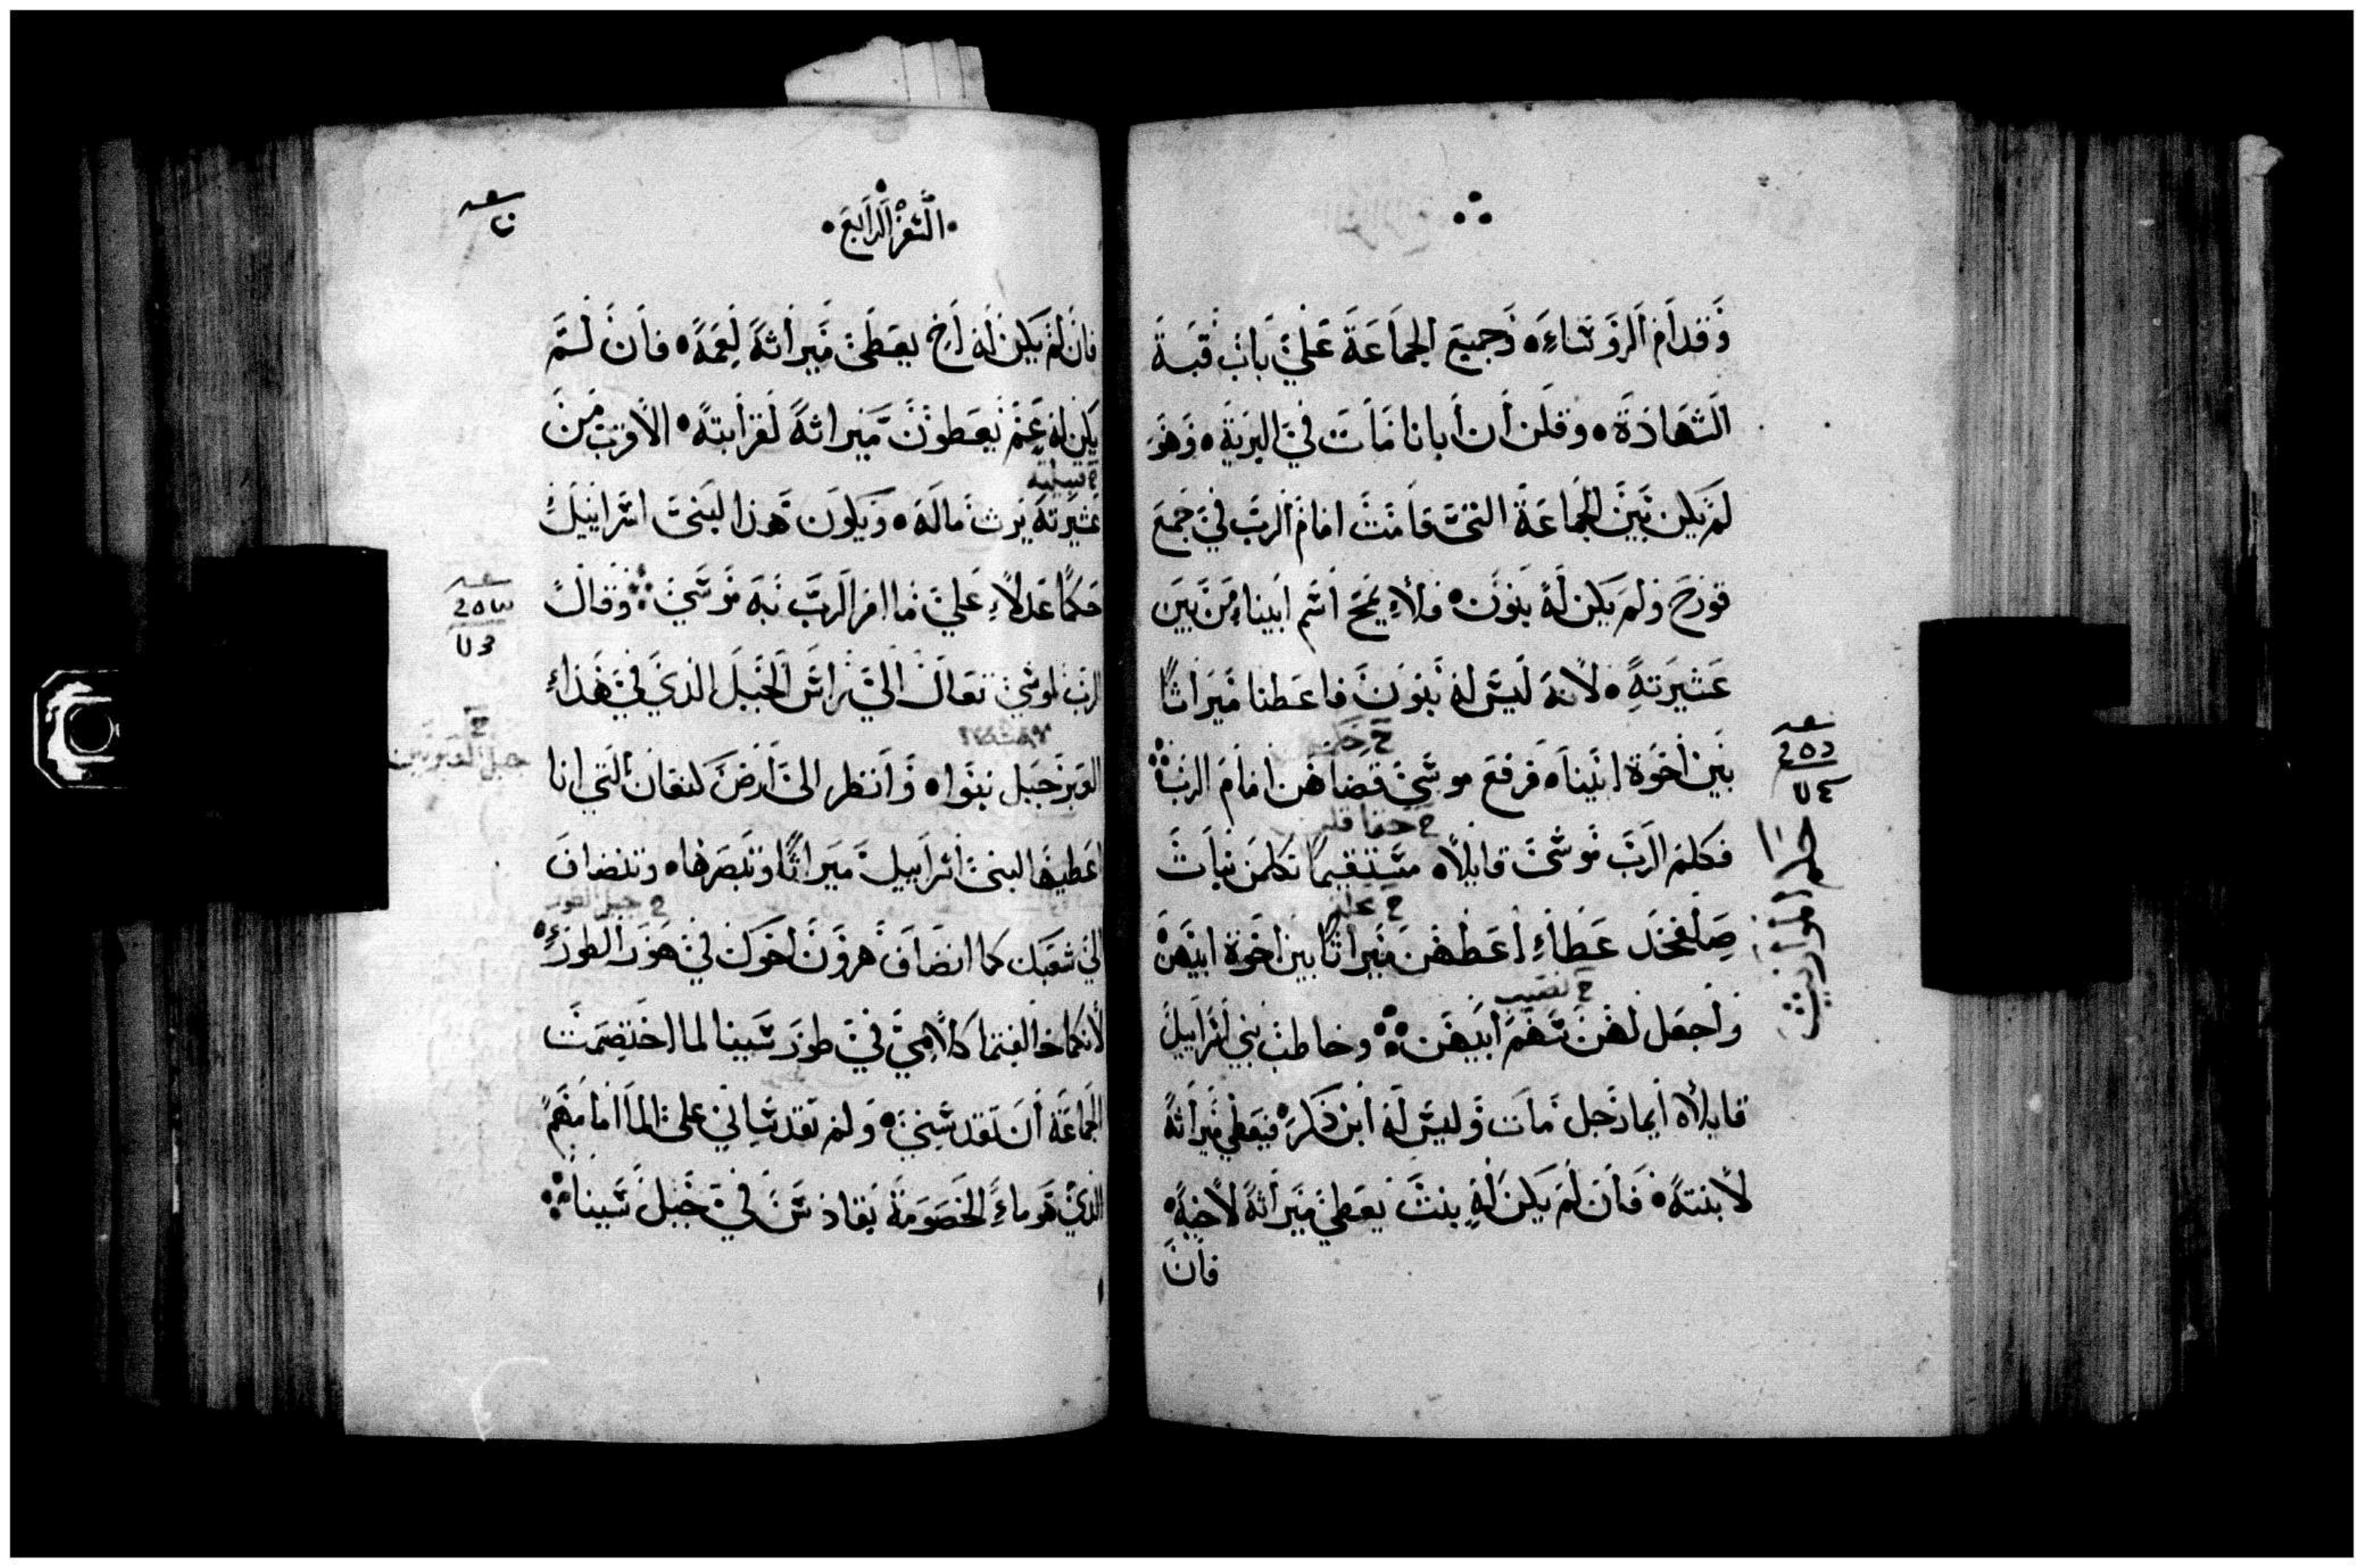 وقدام الروساء وجميع الجماعة علي باب قبة
الشهادة وقلن ان ابانا مات في البرية وهو
لم يكن بين الجماعة التي قامت امام الرب في جمع
قورح ولم يكن له بنون فلا يمح اسم ابينا من بين
عشيرته لانه ليس له بنون فاعطنا ميراثا
بين اخوة ابينا فرفع موسي قضاهن امام الرب
فكلم الرب موسي قايلا مستقيما تكلمن بنات
صلفحد عطاء اعطهن ميراثا بين اخوة ابيهن
واجعل لهن سهم ابيهن وخاطب بني اسراييل
قايلا ايما رجل مات وليس له ابن ذكر فيعطي ميراثه
لابنته فان لم يكن له بنت يعطي ميراثه لاخيه
فان
السفر الرابع
فان لم يكن له اخ يعطي ميراثه لعمه فان لم
يكن له عم يعطون ميراثه لقرابته الاقرب من
عشيرته يرث ماله ويكون هذا لبني اسراييل
حكما عدلا علي ما امر الرب به موسي وقال
الرب لموسي تعال الي راس الجبل الذي في هذا
العبر جبل نبوا وانظر الي ارض كنعان التي انا
اعطيها لبني اسراييل ميراثا وتبصرها وتنضاف
الي شعبك كما انضاف هرون اخوك في هور الطور
لانكما خالفتما كلامي في طور سينا لما اختصمت
الجماعة ان تقدسني ولم تقدساني علي الما امامهم
الذي هو ماء الخصومة بقادس في جبل سينا